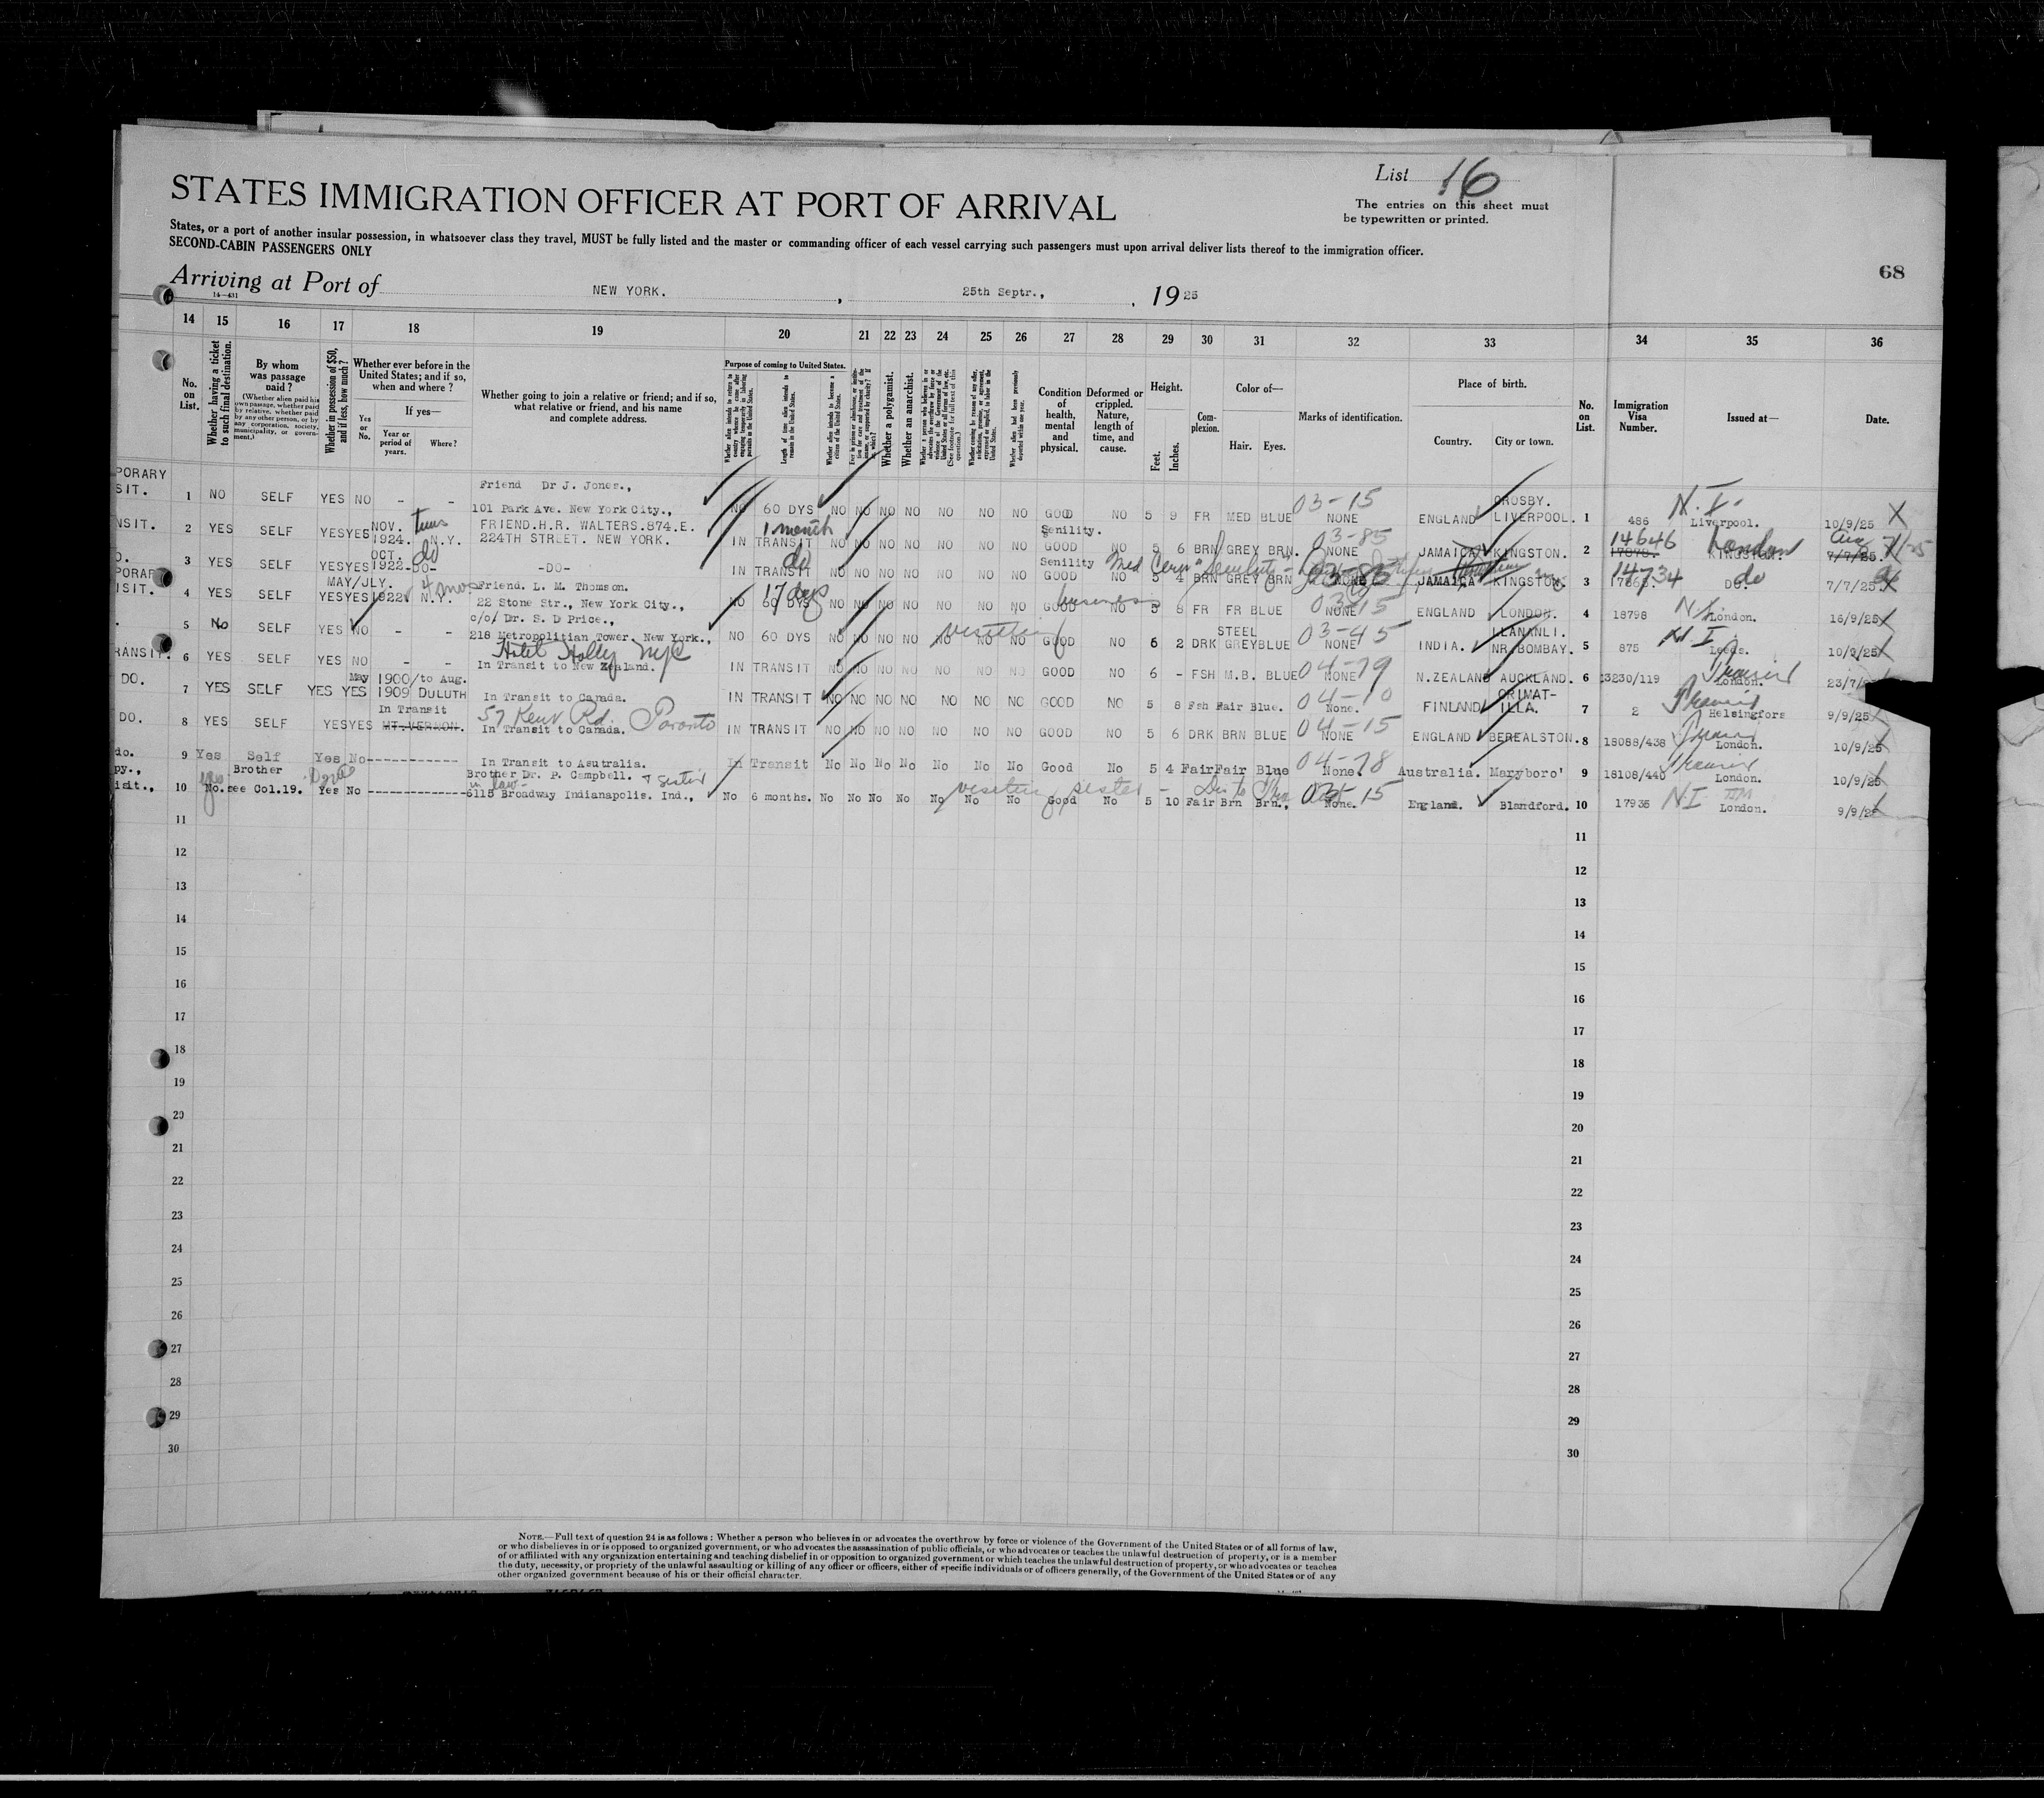 List 16
STATES IMMIGRATION OFFICER AT PORT OF ARRIVAL
The entries on this sheet must
be typewritten or printed.
States, or a port of another insular possession, in whatsoever class they travel, MUST be fully listed and the master or commanding officer of each vessel carrying such passengers must upon arrival deliver lists thereof to the immigration officer.
SECOND-CABIN PASSENGERS ONLY
68
Arriving at Port of NEW YORK. , 25th Septr., , 1925
14—431
14 15 16 17 18 19 20 21 22 23 24 25 26 27 28 29 30 31 32 33 34 35 36
No. on List.
Whether having a ticket to such final destination.
By whom was passage paid?
(Whether alien paid his own passage, whether paid by relative, whether paid by any other person, or by any corporation, society, municipality, or government.)
Whether in possession of $50, and if less, how much?
Whether ever before in the United States; and if so, when and where?
Yes or No.
If yes—
Year or period of years.
Where?
Whether going to join a relative or friend; and if so, what relative or friend, and his name and complete address.
Purpose of coming to United States.
Length of time alien intends to remain in the United States.
Whether alien intends to become a citizen of the United States.
Whether a polygamist.
Whether an anarchist.
Condition of health, mental and physical.
Deformed or crippled. Nature, length of time, and cause.
Height.
Feet.
Inches.
Complexion.
Color of—
Hair.
Eyes.
Marks of identification.
Place of birth.
Country.
City or town.
No. on List.
Immigration Visa Number.
Issued at—
Date.
PORARY
SIT.
Friend Dr J. Jones.,
1 NO SELF YES NO - - 101 Park Ave. New York City., NO 60 DYS NO NO NO NO NO NO NO GOOD NO 5 9 FR MED BLUE 03-15 NONE ENGLAND CROSBY. LIVERPOOL. 1 486 N.I. Liverpool. 10/9/25
NSIT. 2 YES SELF YES YES NOV. 1924. N.Y. FRIEND.H.R. WALTERS.874.E. 224TH STREET. NEW YORK. 1 month IN TRANSIT NO NO NO NO NO NO NO Senility. GOOD NO 5 6 BRN GREY BRN. 03-85 NONE JAMAICA KINGSTON. 2 14646 London KINGSTON. 7/7/25.
3 YES SELF YES YES OCT. 1922 do -DO- -DO- do IN TRANSIT NO NO NO NO NO NO NO Senility GOOD NO 5 4 BRN GREY BRN 03-85 JAMAICA KINGSTON 3 14734 DO. do 7/7/25.
PORAR
ISIT. 4 YES SELF YES YES MAY/JLY. 1922. N.Y. 4 mos Friend. L. M. Thomson. 22 Stone Str., New York City., NO 17 days 60 DYS NO NO NO NO NO NO NO GOOD NO business 5 8 FR FR BLUE 03-15 NONE ENGLAND LONDON. 4 18798 London. 16/9/25
5 No SELF YES NO - - c/o/ Dr. S. D Price., 218 Metropolitian Tower. New York., NO 60 DYS NO NO NO NO NO NO NO GOOD NO 6 2 DRK STEEL GREY BLUE 03-45 NONE INDIA. NR.BOMBAY. 5 875 N.I Leeds. 10/9/25
RANSIT. 6 YES SELF YES NO - - Hotel Holly NYC In Transit to New Zealand. IN TRANSIT NO NO NO NO NO NO NO GOOD NO 6 - FSH M.B. BLUE 04-79 NONE N.ZEALAND AUCKLAND. 6 23230/119 Transit London. 23/7/
DO. 7 YES SELF YES YES May 1900/to Aug. 1909 DULUTH In Transit to Canada. IN TRANSIT NO NO NO NO NO NO NO GOOD NO 5 8 Fsh Fair Blue. 04-10 None. FINLAND CRIMAT-ILLA. 7 2 Transit Helsingfors 9/9/25
DO. 8 YES SELF YES YES In Transit MT.VERNON. 57 Kenv Rd. Toronto In Transit to Canada. IN TRANSIT NO NO NO NO NO NO NO GOOD NO 5 6 DRK BRN BLUE 04-15 NONE ENGLAND BEREALSTON. 8 18088/438 Transit London. 10/9/25
do. 9 Yes Self Yes No----------- In Transit to Asutralia. In Transit No No No No No No No Good No 5 4 Fair Fair Blue 04-78 None. Australia. Maryboro' 9 18108/440 Transit London. 10/9/25
py.,
isit., 10 yes No. Brother see Col.19. Yes No ------------- Brother Dr. P. Campbell. & sister in law- 5115 Broadway Indianapolis. Ind., No 6 months. No No No No No No No Good No visiting sister 5 10 Fair Brn Brn., 15 None. England. Blandford. 10 17935 NI London. 9/9/25
11 11
12 12
13 13
14 14
15 15
16 16
17 17
18 18
19 19
20 20
21 21
22 22
23 23
24 24
25 25
26 26
27 27
28 28
29 29
30 30
NOTE.—Full text of question 24 is as follows: Whether a person who believes in or advocates the overthrow by force or violence of the Government of the United States or of all forms of law,
or who disbelieves in or is opposed to organized government, or who advocates the assassination of public officials, or who advocates or teaches the unlawful destruction of property, or is a member
of or affiliated with any organization entertaining and teaching disbelief in or opposition to organized government or which teaches the unlawful destruction of property, or who advocates or teaches
the duty, necessity, or propriety of the unlawful assaulting or killing of any officer or officers, either of specific individuals or of officers generally, of the Government of the United States or of any
other organized government because of his or their official character.